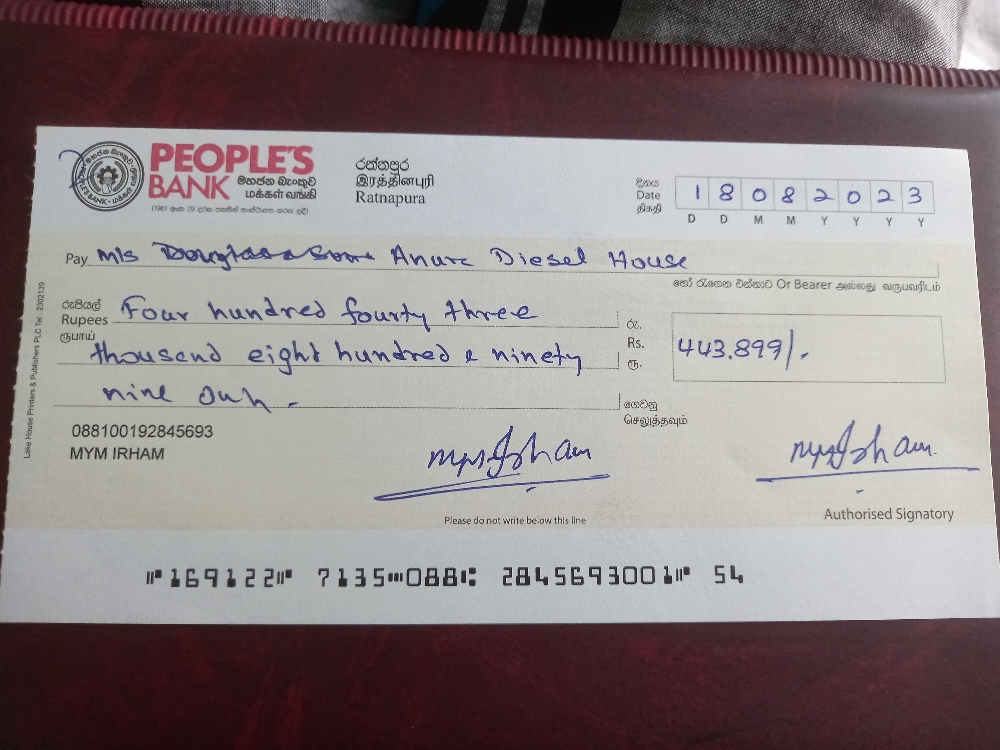 PEOPLE'S
BANK මහජන බැංකුව
மக்கள் வங்கி
(1961 අංක 29 දරන පනතින් සංස්ථාපනය කරන ලදි)
රත්නපුර
இரத்தினபுரி
Ratnapura
දිනය
Date
திகதி
1 8 0 8 2 0 2 3
D D M M Y Y Y Y
Pay M/s Anura Diesel House
හෝ රැගෙන එන්නාට Or Bearer அல்லது வருபவரிடம்
රුපියල්
Rupees Four hundred fourty three
ரூபாய்
thousand eight hundred & ninety
nine
රු.
Rs. 443.899/.
ரூ.
ගෙවනු
செலுத்தவும்
088100192845693
MYM IRHAM
Please do not write below this line
Authorised Signatory
⑈169122⑈ 7135⑉088⑆ 2845693001⑈ 54
Lake House Printers & Publishers PLC Tel : 2302139